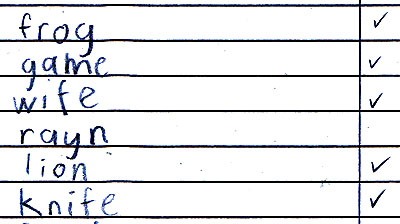 frog ✓
game ✓
wife ✓
rayn
lion ✓
knife ✓